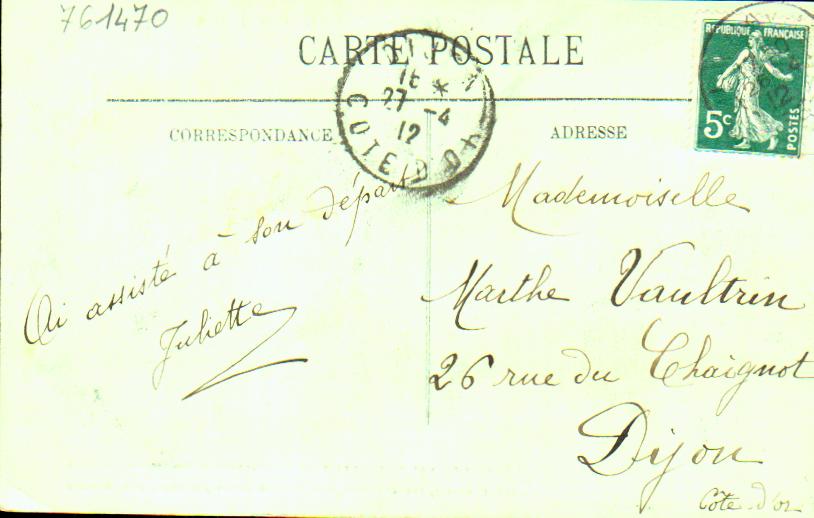 761470
CARTE POSTALE
CORRESPONDANCE
ADRESSE
REPUBLIQUE FRANÇAISE
5c
POSTES
DIJON
16 *
27 - 4
12
COTE D'OR
12
Ai assisté à son départ
Juliette
Mademoiselle
Marthe Vaultrin
26 rue du Chaignot
Dijon
Côte-d'or